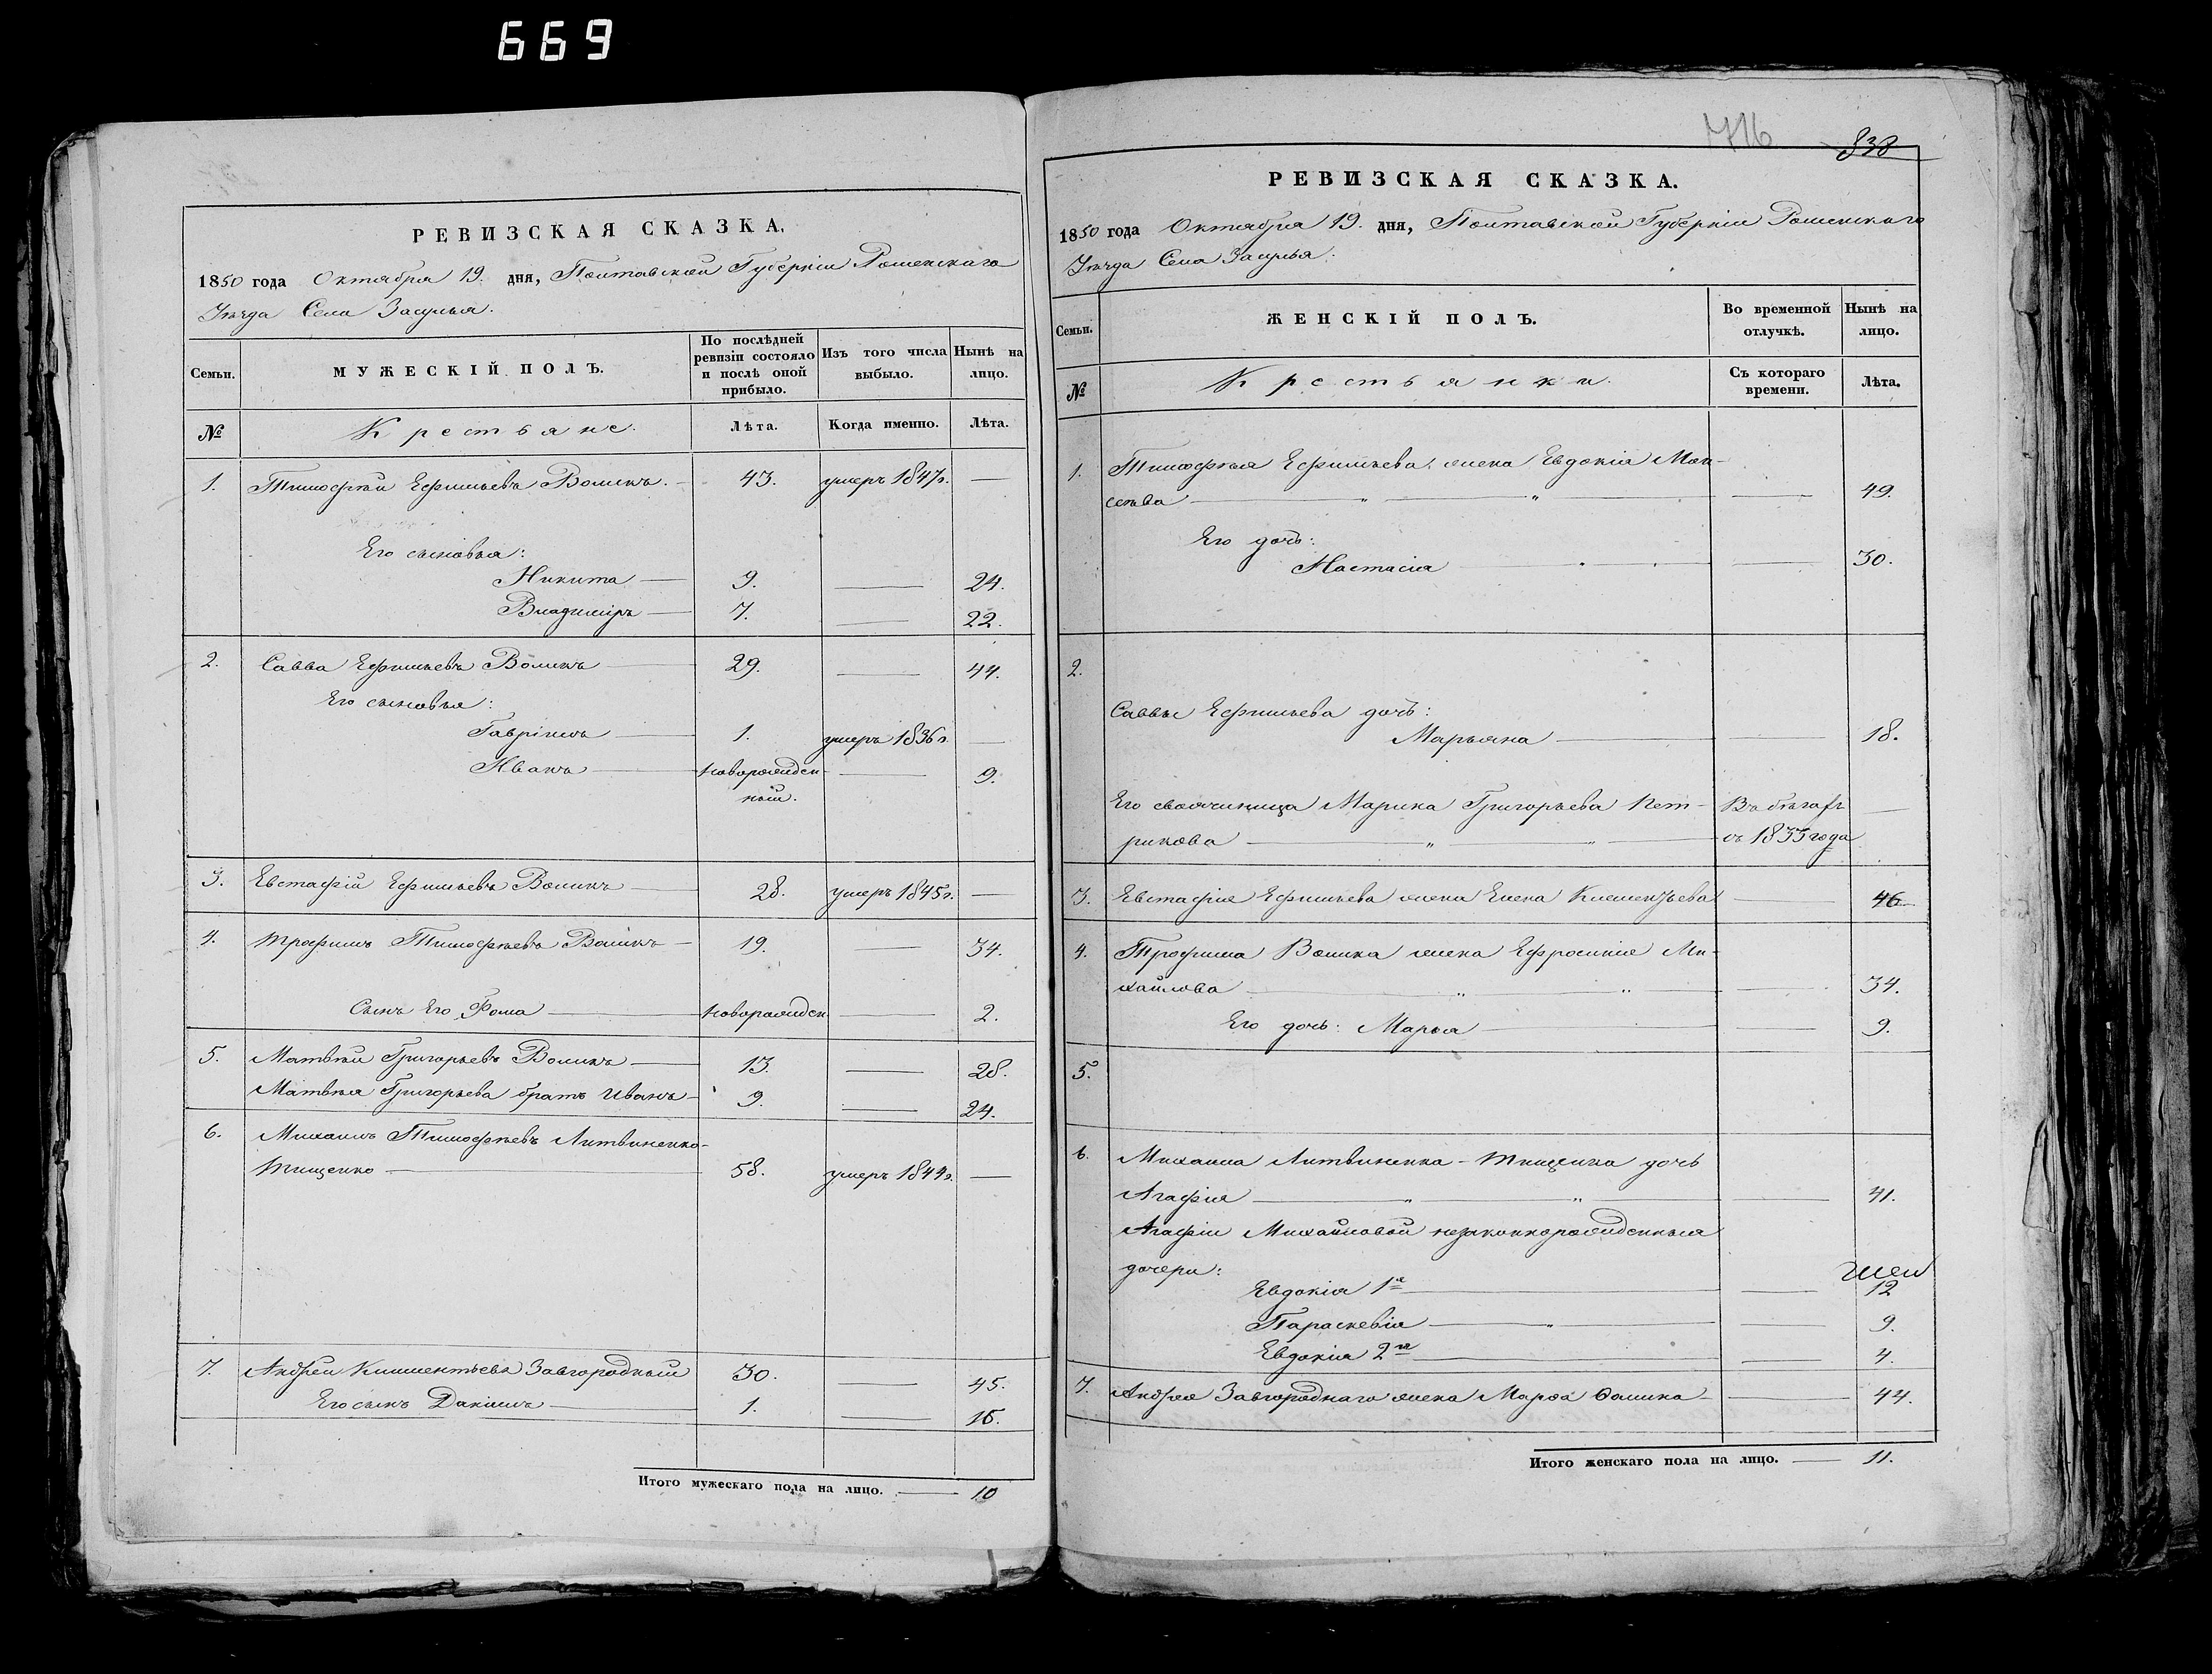 669
РЕВИЗСКАЯ СКАЗКА.
1850 года Октября 19. дня, Полтавской Губерніи Роменскаго
Уѣзда Села Засулья.
Семьи.
МУЖЕСКІЙ ПОЛЪ.
По послѣдней ревизіи состояло и послѣ оной прибыло.
Изъ того числа выбыло.
Нынѣ на лицо.
№
Крестьяне.
Лѣта.
Когда именно.
Лѣта.
1. Тимофѣй Ефимьевъ Воликъ. — 43. умеръ 1847г. —
Его сыновья:
Никита — 9. — 24.
Владиміръ — 7. — 22.
2. Савва Ефимьевъ Воликъ — 29. — 44.
Его сыновья:
Гаврiилъ — 1. умеръ 1836г. —
Иванъ — Новорожден- — 9.
ный.
3. Евстафій Ефимьевъ Воликъ — 28. умеръ 1845г. —
4. Трофимъ Тимофѣевъ Воликъ — 19. — 34.
Сынъ Его Фома — Новорожден — 2.
5. Матвѣй Григорьевъ Воликъ — 13. — 28.
Матвѣя Григорьева братъ Иванъ — 9. — 24.
6. Михаилъ Тимофѣевъ Литвиненко-
Тищенко — 58. умеръ 1844г. —
7. Андрей Климентьевъ Завгородный 30. — 45.
Его сынъ Данiилъ — 1. — 16.
Итого мужескаго пола на лицо. — 10
716
838
РЕВИЗСКАЯ СКАЗКА.
1850 года Октября 19. дня, Полтавской Губерніи Роменскаго
Уѣзда Села Засулья.
Семьи.
ЖЕНСКІЙ ПОЛЪ.
Во временной отлучкѣ.
Нынѣ на лицо.
№
Крестьянки.
Съ котораго времени.
Лѣта.
1. Тимофѣя Ефимьева жена Евдокія Мои-
сеѣва — " — " — — 49.
Его дочь:
Настасія — — 30.
2.
Саввы Ефимьева дочь:
Марьяна — — 18.
Его своячиница Марина Григорьева Пет- Въ бѣгахъ —
рикова — " — " — съ 1833 года
3. Евстафія Ефимьева жена Елена Клементьева — 46
4. Трофима Волика жена Ефросинія Ми-
хайлова — " — " — — 34.
Его дочь: Марья — — 9.
5.
6. Михаила Литвиненка-Тищенка дочь
Агафія — " — " — — 41.
Агафіи Михайловой незаконнорожденныя
дочери:
Евдокія 1я — — 12
Параскевія — " — — 9.
Евдокія 2я — — 4.
7. Андрея Завгороднаго жена Марѳа Ѳомина — — 44.
Итого женскаго пола на лицо. — 11.